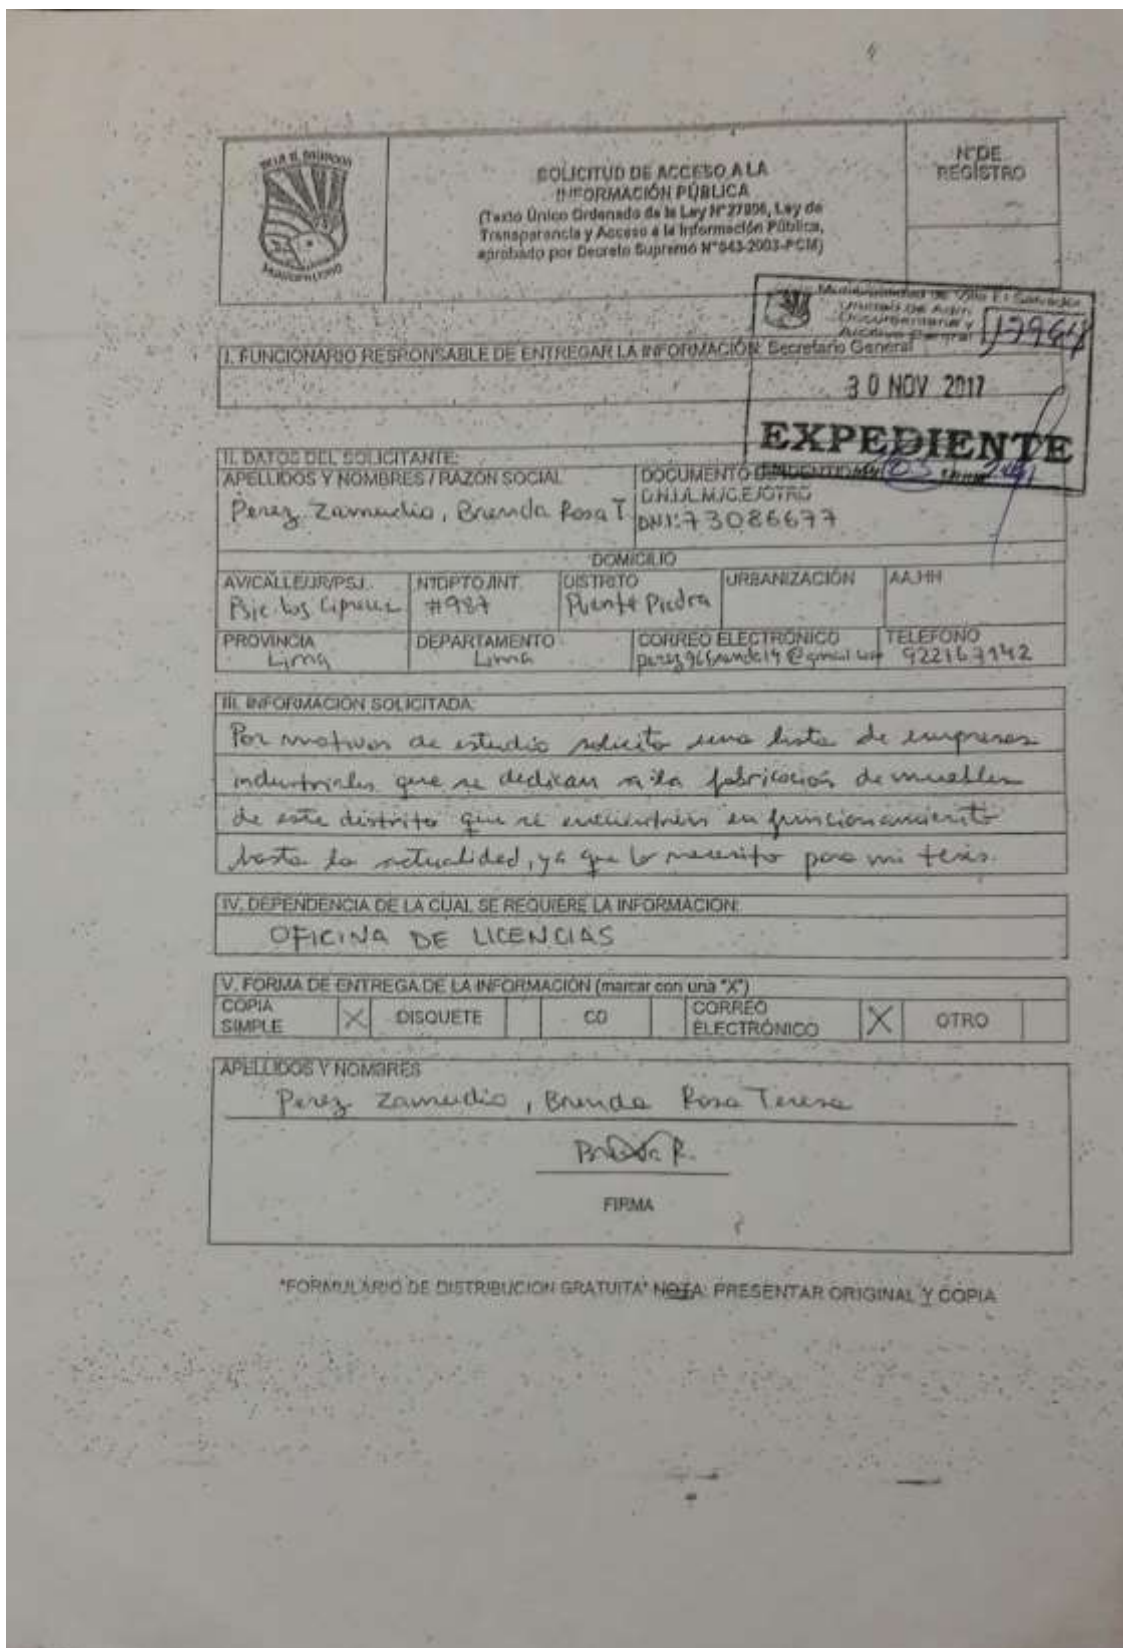 VILLA EL SALVADOR
MUNICIPALIDAD
SOLICITUD DE ACCESO A LA
INFORMACIÓN PÚBLICA
(Texto Único Ordenado de la Ley N°27806, Ley de
Transparencia y Acceso a la Información Pública,
aprobado por Decreto Supremo N°043-2003-PCM)
N° DE
REGISTRO
Municipalidad de Villa El Salvador
Unidad de Adm.
Documentaria y
Archivo General
I. FUNCIONARIO RESPONSABLE DE ENTREGAR LA INFORMACIÓN: Secretario General
30 NOV 2017
EXPEDIENTE
II. DATOS DEL SOLICITANTE:
APELLIDOS Y NOMBRES / RAZÓN SOCIAL
Perez Zamudio, Brenda Rosa T
DOCUMENTO DE IDENTIDAD
D.N.I./L.M./C.E./OTRO
DNI: 73086677
DOMICILIO
AV/CALLE/JR/PSJ.
Psje los Cipreces
N°/DPTO./INT.
#987
DISTRITO
Puente Piedra
URBANIZACIÓN
AA.HH
PROVINCIA
Lima
DEPARTAMENTO
Lima
CORREO ELECTRÓNICO
TELÉFONO
922167142
III. INFORMACIÓN SOLICITADA:
Por motivos de estudio solicito una lista de empresas
industriales que se dedican a la fabricación de muebles
de este distrito que se encuentren en funcionamiento
hasta la actualidad, ya que lo necesito para mi tesis.
IV. DEPENDENCIA DE LA CUAL SE REQUIERE LA INFORMACIÓN:
OFICINA DE LICENCIAS
V. FORMA DE ENTREGA DE LA INFORMACIÓN (marcar con una "X")
COPIA
SIMPLE X DISQUETE CD CORREO
ELECTRÓNICO X OTRO
APELLIDOS Y NOMBRES
Perez Zamudio, Brenda Rosa Teresa
FIRMA
"FORMULARIO DE DISTRIBUCION GRATUITA" NOTA: PRESENTAR ORIGINAL Y COPIA